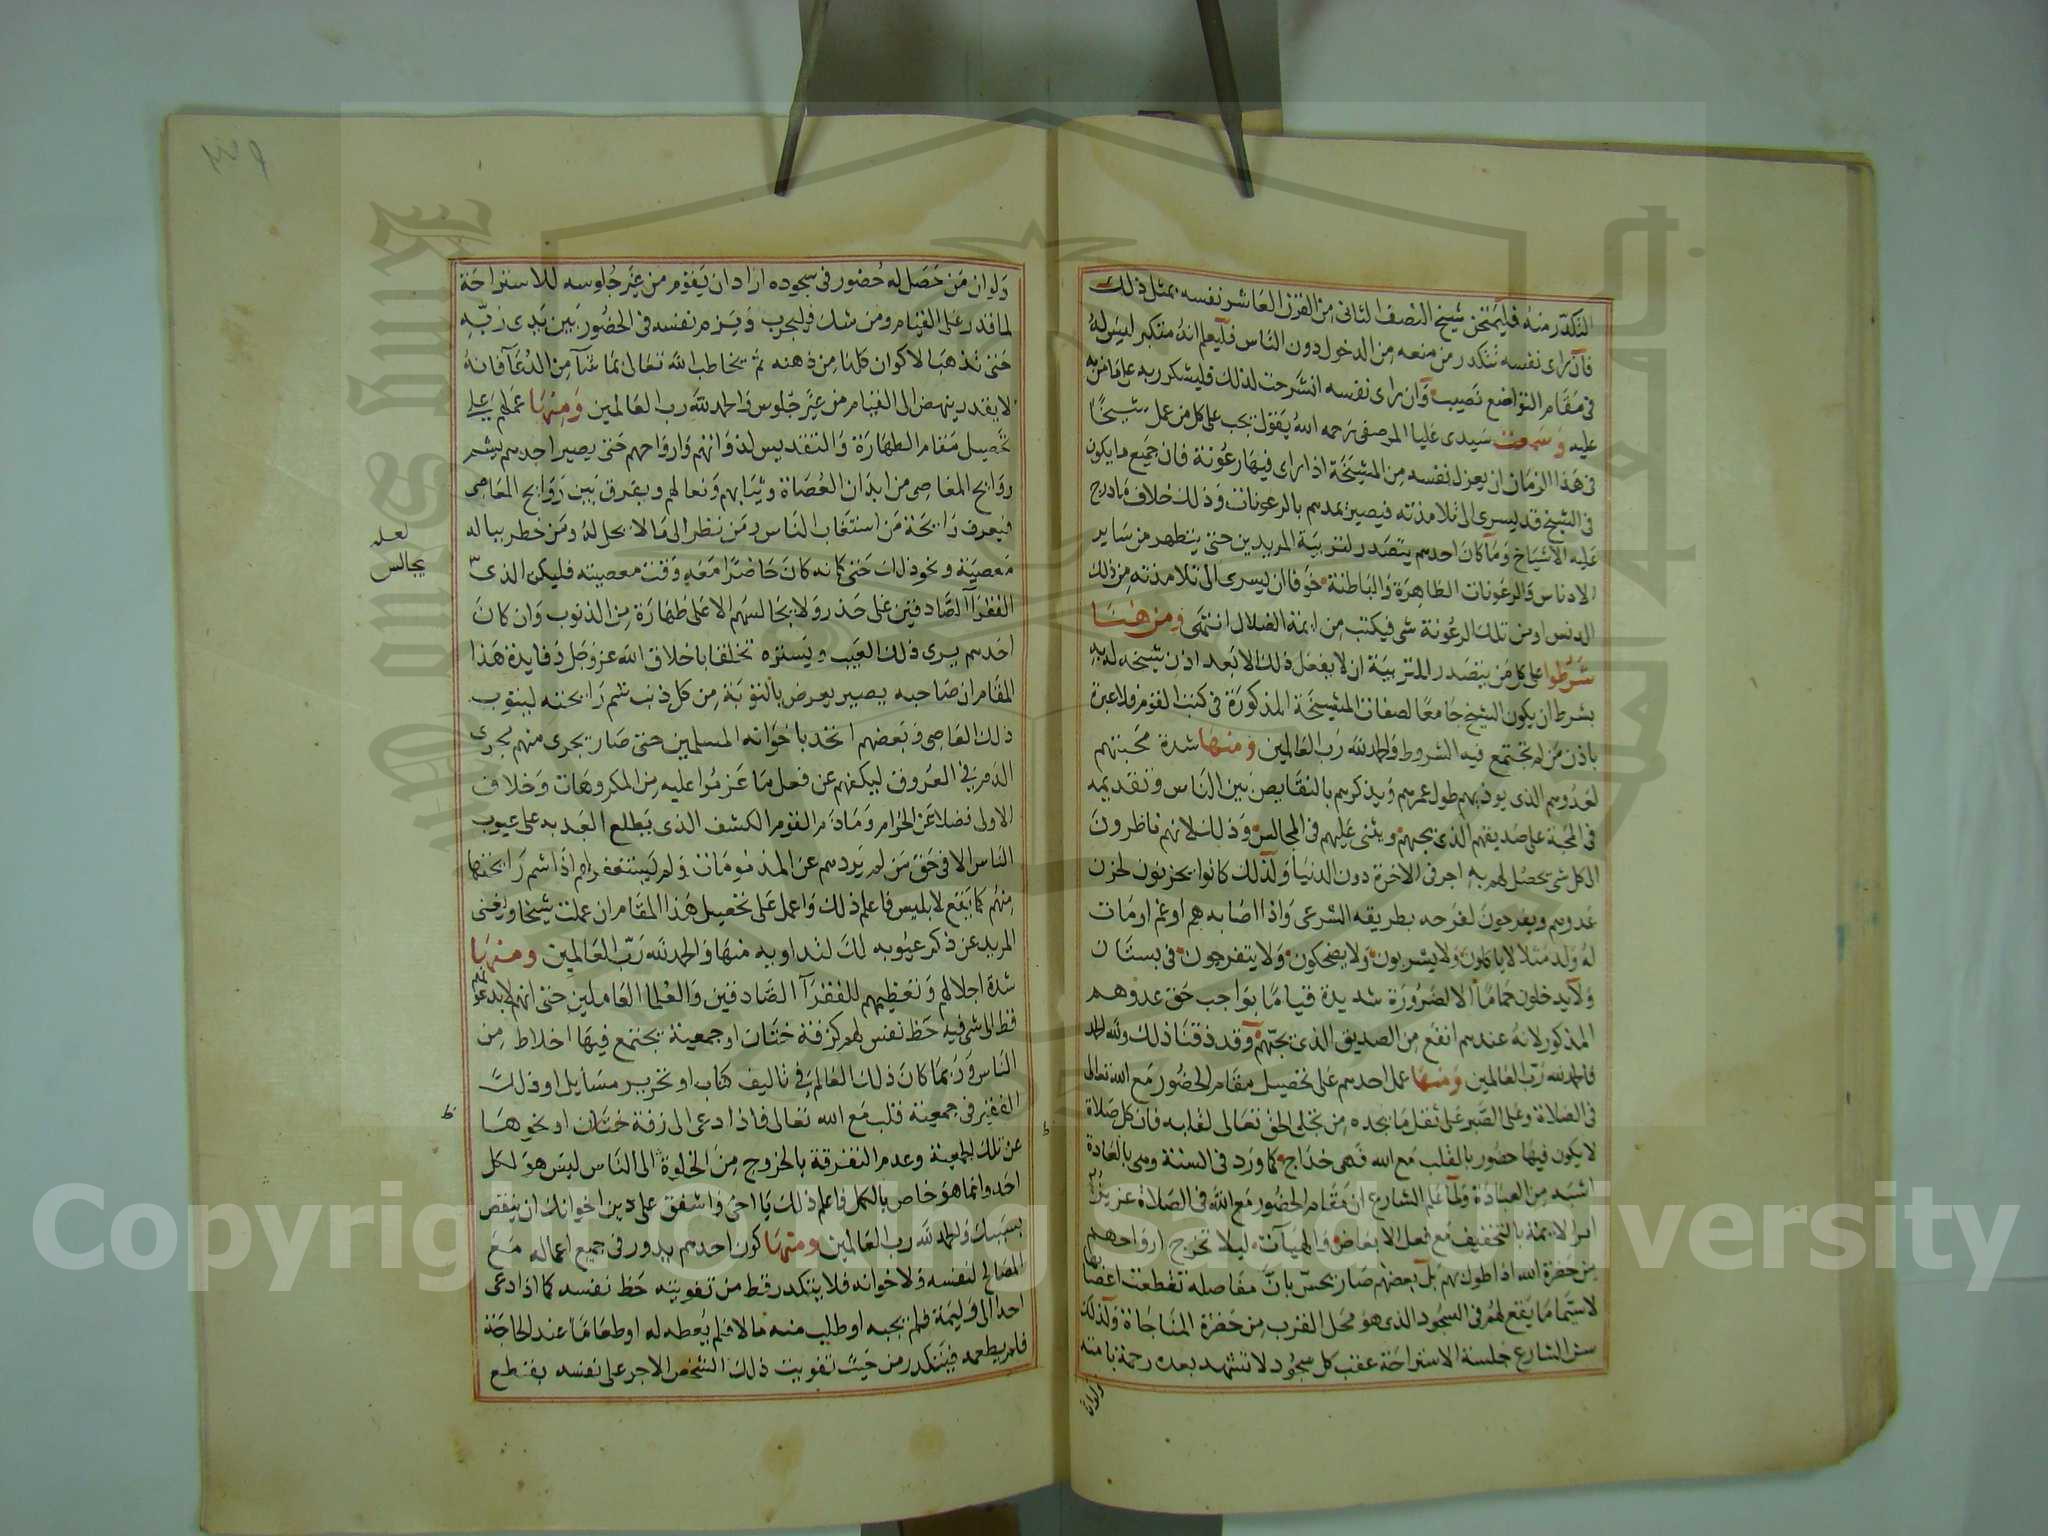 التكدر منه فليمتحن شيخ النصف الثاني من القرن العاشر نفسه بمثل ذلك
فان راى نفسه تتكدر من منعه من الدخول دون الناس فليعلم انه متكبر ليس له
في مقام التواضع نصيب وان راى نفسه انشرحت لذلك فليشكر ربه على ما من به
عليه وسمعت سيدى عليا المرصفى رحمه الله يقول يجب على كل من عمل شيخا
في هذا الزمان ان يعزل نفسه من المشيخة اذا راى فيها رعونة فان جميع ما يكون
في الشيخ قد يسرى الى تلامذته فيصير يمدهم بالرعونات وذلك خلاف ما درج
عليه الاشياخ وما كان احدهم يتصدر لتربية المريدين حتى يتطهر من ساير
الادناس والرعونات الظاهرة والباطنة خوفا ان يسرى الى تلامذته من ذلك
الدنس او من تلك الرعونة شى فيكتب من ايمة الضلال انتهى ومن هنا
شرطوا على كل من يتصدر للتربية ان لا يفعل ذلك الا بعد اذن شيخه له به
بشرط ان يكون الشيخ جامعا لصفات المشيخة المذكورة في كتب القوم فلا عبرة
باذن من لم تجتمع فيه الشروط والحمد لله رب العالمين ومنها شدة محبتهم
لعدوهم الذى يوذيهم طول عمرهم ويذكرهم بالنقايص بين الناس وتقديمه
في المحبة على صديقهم الذى يحبهم ويثنى عليهم في المجالس وذلك لانهم ناظرون
الى كل شى يحصل لهم به اجر فى الاخرة دون الدنيا ولذلك كانوا يحزنون لحزن
عدوهم ويفرحون لفرحه بطريقه الشرعى واذا اصابه هم او غم او مات
له ولد مثلا لا ياكلون ولا يشربون ولا يضحكون ولا يتفرجون في بستان
ولا يدخلون حماما الا لضرورة شديدة قياما بواجب حق عدوهم
المذكور لانه عندهم انفع من الصديق الذى يحبهم وقد ذقنا ذلك ولله الحمد
فالحمد لله رب العالمين ومنها عمل احدهم على تحصيل مقام الحضور مع الله تعالى
في الصلاة وعلى الصبر على ثقل ما يجده من تجلى الحق تعالى لقلبه فان كل صلاة
لا يكون فيها حضور بالقلب مع الله فهى خداج كما ورد في السنة وهى بالعادة
اشبه من العبادة ولما علم الشارع ان مقام الحضور مع الله في الصلاة عزيز
امر الايمة بالتخفيف مع فعل الابعاض والهيآت ليلا تخرج ارواحهم
من حضرة الله اذا طول بهم بل بعضهم صار يحس بان مفاصله تقطعت اعضابها
لاسيما ما يقع لهم في السجود الذى هو محل القرب من حضرة المناجاة ولذلك
سن الشارع جلسة الاستراحة عقب كل سجود لا تشهد بعده رحمة بامته
ولو ان
ولو ان من حصل له حضور في سجوده اراد ان يقوم من غير جلوسه للاستراحة
لما قدر على القيام ومن شك فليجرب ويزم نفسه في الحضور بين يدى ربه
حتى تذهب الاكوان كلها من ذهنه ثم يخاطب الله تعالى بما شآ من الدعآ فانه
لا يقدر ينهض الى القيام من غير جلوس والحمد لله رب العالمين ومنها عملهم على
تحصيل مقام الطهارة والتقديس لذواتهم وارواحهم حتى يصير احدهم يشم
روايح المعاصى من ابدان العصاة وثيابهم ونعالهم ويفرق بين روايح المعاصى
فيعرف رايحة من استغاب الناس ومن نظر الى ما لا يحل له ومن خطر بباله
معصية ونحو ذلك حتى كانه كان حاضرا معه وقت معصيته فليكن الذى
لعله
يجالس
الفقرآ الصادقين على حذر ولا يجالسهم الا على طهارة من الذنوب وان كان
احدهم يرى ذلك العيب ويستره تخلقا باخلاق الله عز وجل وفايدة هذا
المقام ان صاحبه يصير يعرض بالتوبة من كل ذنب شم رايحته ليتوب
ذلك العاصى وبعضهم اتحد باخوانه المسلمين حتى صار يجرى منهم مجرى
الدم في العروق ليكفهم عن فعل ما عزموا عليه من المكروهات وخلاف
الاولى فضلا عن الحرام وما ذم القوم الكشف الذى يطلع العبد به على عيوب
الناس الا في حق من لم يردهم عن المذمومات ولم يستغفر لهم اذا شم رايحتها
منهم كما يقع لابليس فاعلم ذلك واعمل على تحصيل هذا المقام ان عملت شيخا
المريد عن ذكر عيوبه لك لتداويه منها والحمد لله رب العالمين ومنها
شدة اجلالهم وتعظيمهم للفقرآ الصادقين والعلما العاملين حتى انهم لا يدعونهم
قط الى شى فيه حظ نفس لهم كزفة ختان او جمعية يجتمع فيها اخلاط من
الناس وربما كان ذلك العالم في تاليف كتاب او تحرير مسايل او ذلك
الفقير في جمعية قلب مع الله تعالى فاذا دعى الى زفة ختان او نحوها
عن تلك الجمعية وعدم التفرقة بالخروج من الخلوة الى الناس ليس هو لكل
احد وانما هو خاص بالكمل فاعلم ذلك يا اخى واشفق على دين اخوانك ان ينقص
بسببك والحمد لله رب العالمين ومنها كون احدهم يدور في جميع اعماله مع
المصالح لنفسه ولاخوانه فلا يتكدر قط من تفويته حظ نفسه كما اذا دعى
احدا الى وليمة فلم يجبه او طلب منه مالا فلم يعطه له او طعاما عند الحاجة
فلم يطعمه فيتكدر من حيث تفويت ذلك الشخص الاجر على نفسه بقطع
Copyright © King Saud University